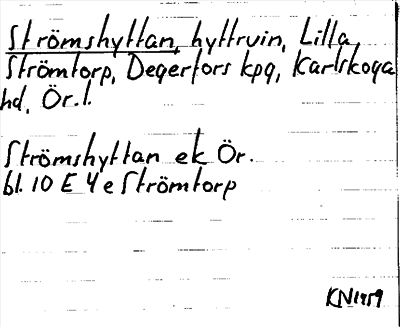 Strömshyttan, hyttruin, Lilla
Strömtorp, Degerfors kpg, Karlskoga
hd, Ör. l.
Strömshyttan ek Ör.
bl. 10 E 4 e Strömtorp
KN1959